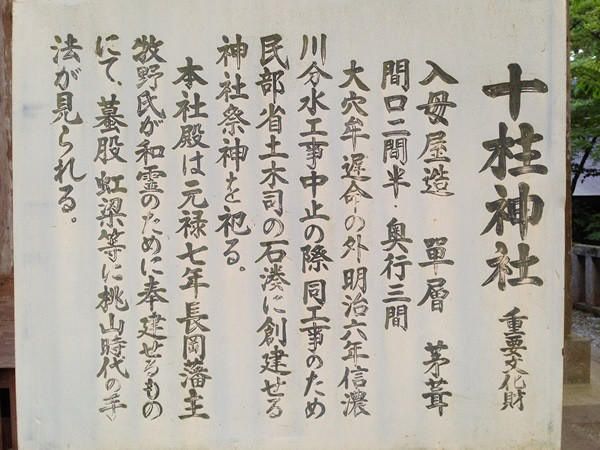 十柱神社 重要文化財
入母屋造 單層 茅葺
間口二間半・奥行三間
大穴牟遅命の外明治六年信濃
川分水工事中止の際同工事のため
民部省土木司の石湊に創建せる
神社祭神を祀る。
本社殿は元禄七年長岡藩主
牧野氏が和霊のために奉建せるもの
にて、蟇股虹梁等に桃山時代の手
法が見られる。